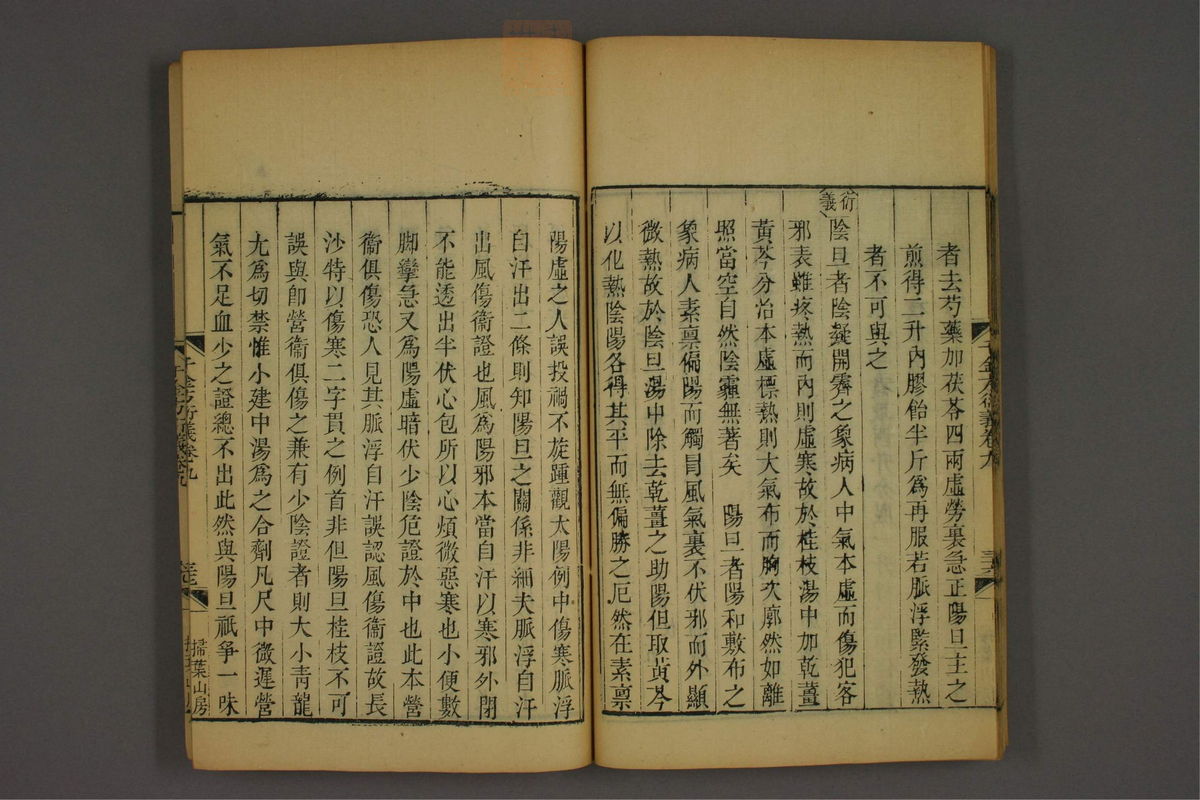 者去芍藥加茯苓四兩虛勞裏急正陽旦主之
煎得二升內膠飴半斤爲再服若脈浮緊發熱
者不可與之
衍義
陰旦者陰凝開霽之象病人中氣本虛而傷犯客
邪表雖疼熱而內則虛寒故於桂枝湯中加乾薑
黃芩分治本虛標熱則大氣布而胸次廓然如離
照當空自然陰霾無著矣　陽旦者陽和敷布之
象病人素稟偏陽而觸冒風氣裏不伏邪而外顯
微熱故於陰旦湯中除去乾薑之助陽但取黃芩
以化熱陰陽各得其平而無偏勝之厄然在素稟
千金方衍義卷九
三六
陽虛之人誤投禍不旋踵觀太陽例中傷寒脈浮
自汗出二條則知陽旦之關係非細夫脈浮自汗
出風傷衞證也風爲陽邪本當自汗以寒邪外閉
不能透出半伏心包所以心煩微惡寒也小便數
脚攣急又爲陽虛暗伏少陰危證於中也此本營
衞俱傷恐人見其脈浮自汗誤認風傷衞證故長
沙特以傷寒二字貫之例首非但陽旦桂枝不可
誤與卽營衞俱傷之兼有少陰證者則大小靑龍
尤爲切禁惟小建中湯爲之合劑凡尺中微遲營
氣不足血少之證總不出此然與陽旦祇爭一味
千金方衍義卷九
三七
掃葉山房